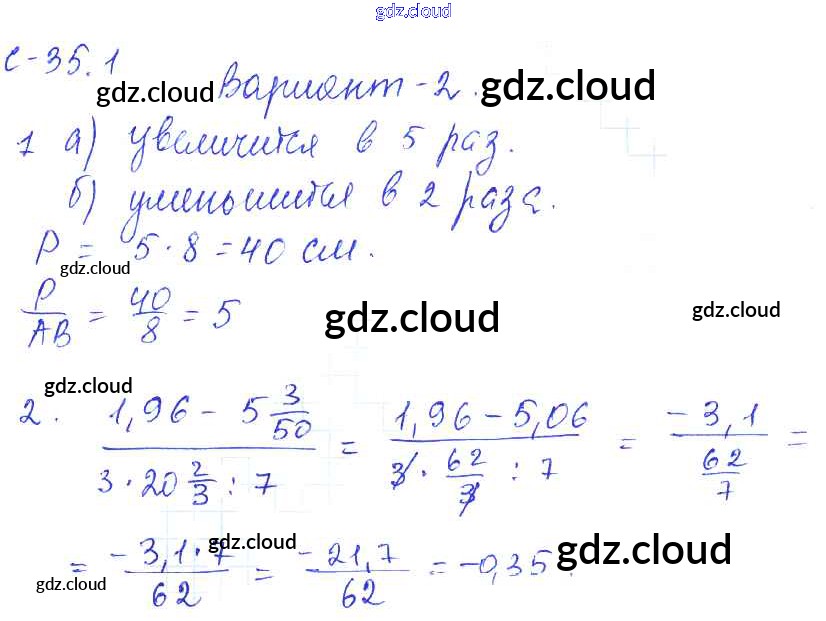 gdz.cloud
С-35.1
gdz.cloud Вариант-2. gdz.cloud
1 а) увеличится в 5 раз.
б) уменьшится в 2 раза.
P = 5 · 8 = 40 см.
gdz.cloud
P/AB = 40/8 = 5 gdz.cloud gdz.cloud
gdz.cloud
2. (1,96 - 5 3/50)/(3 · 20 2/3 : 7) = (1,96 - 5,06)/(3 · 62/3 : 7) = (-3,1)/(62/7) =
= (-3,1 · 7)/62 = (-21,7)/62 = -0,35. gdz.cloud gdz.cloud
gdz.cloud